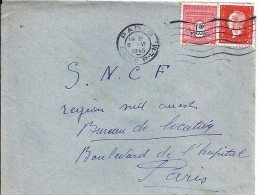 PARIS
1945
S. N. C F
region sud ouest
Bureau de location
Boulevard de l'hopital
Paris